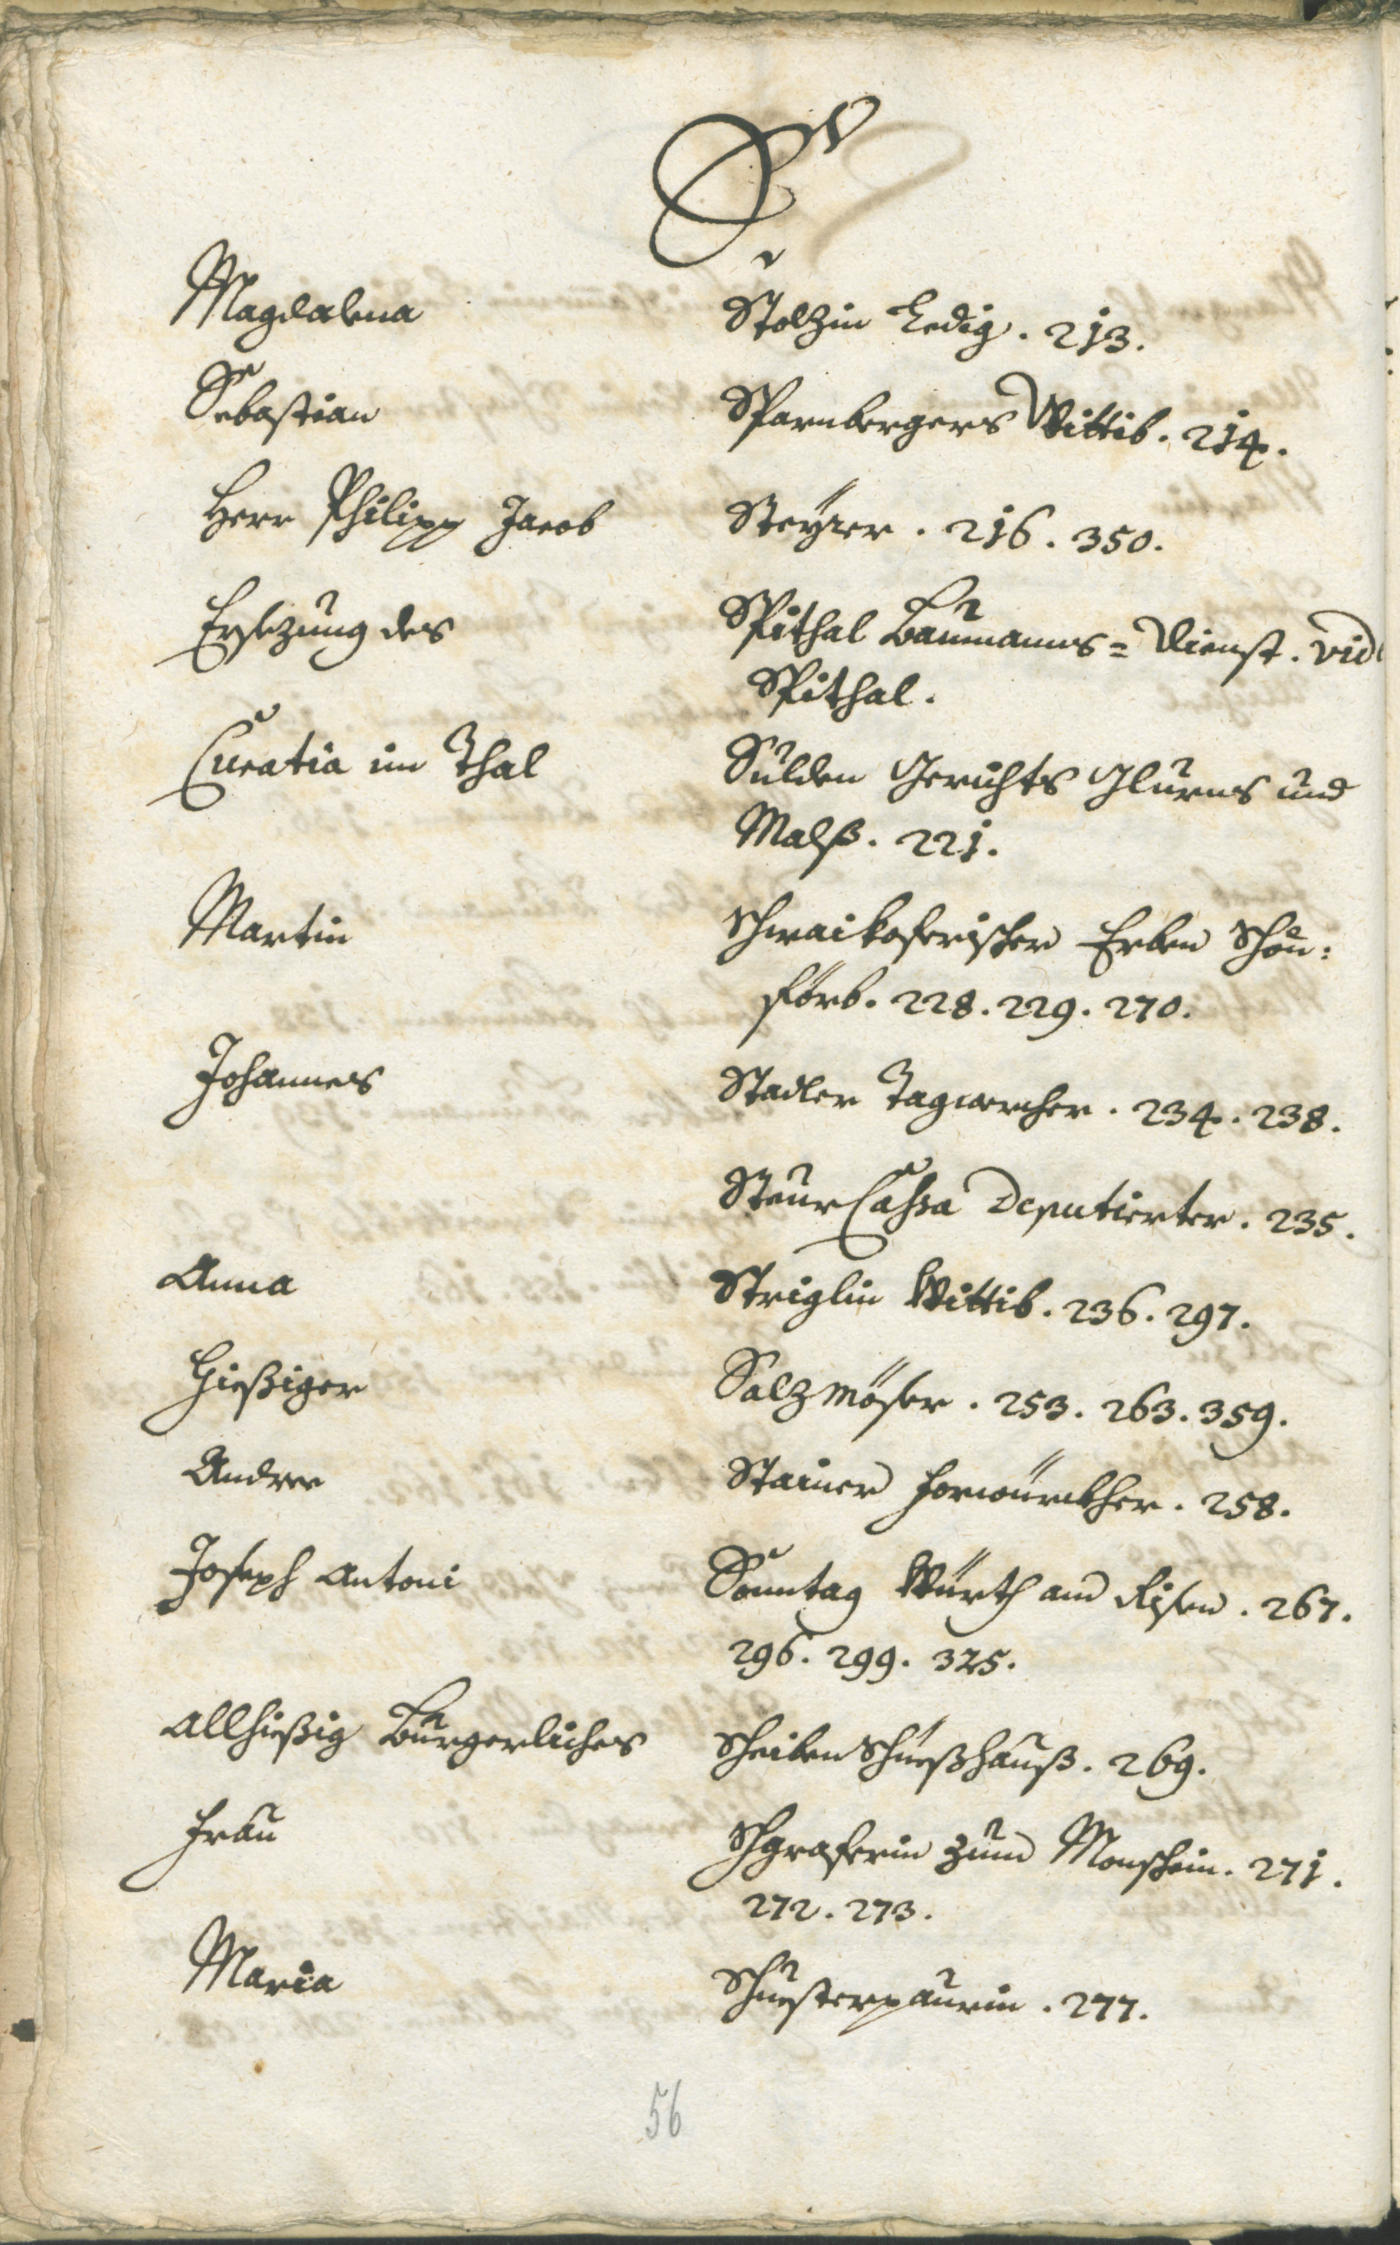 S
Magdalena Stolzin Ledig. 213.
Sebastian Sparnbergers Wittib. 214.
Herr Philipp Jacob Steÿrer. 216. 350.
Ersezung des Spithal Baumanns=Dienst. vid
Spithal.
Curatia im Thal Sulden Gerichts Glurns und
Malß. 221.
Martin Schwaikoferischen Erben Schön=
förb. 228. 229. 270.
Johannes Stadler Tagwercher. 234. 238.
Steur Cassa Deputierter. 235.
Anna Striglin Wittib. 236. 297.
Hießiger Salzmösser. 253. 263. 359.
Andree Stainer Forwürckher. 258.
Joseph Antoni Sonntag Würth am Risen. 267.
296. 299. 325.
allhießig Burgerliches Scheiben Schießhauß. 269.
Frau Schgraferin zum Monschein. 271.
272. 273.
Maria Schusterpaurin. 277.
56